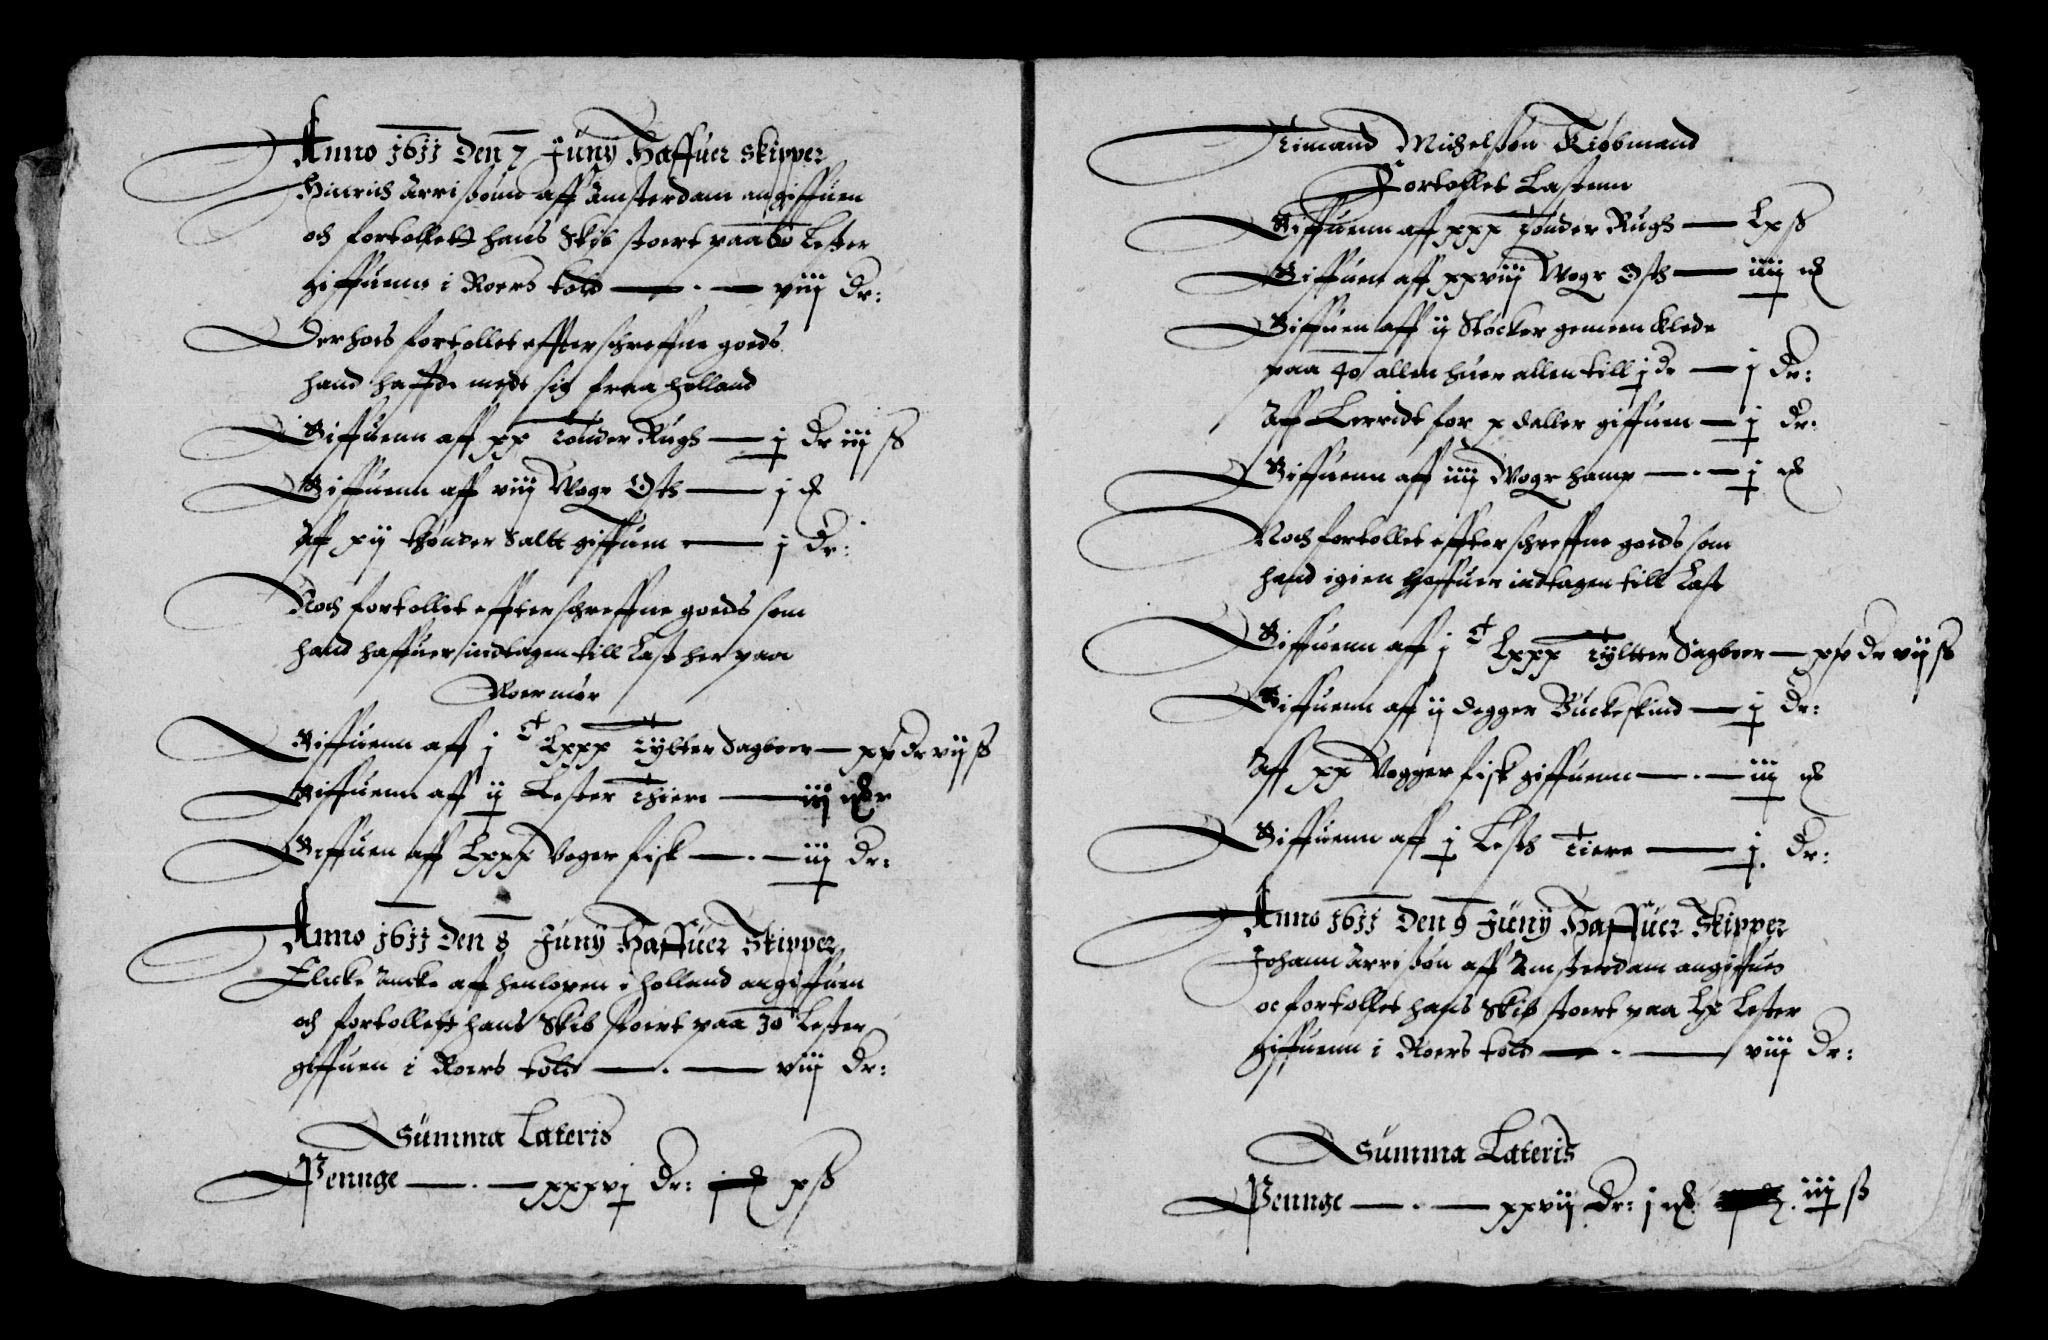 Anno 1611 Den 7 Junÿ Haffuer skipper
Hinrich Arrisönn aff Amsterdam angiffuen
och fortollett hans Skib stoert paa 60 Lester
giffuenn i Roers told — . — viij Dr:
Derhoes fortollet effterschreffne goeds
hand haffde medt sig fraa Holland
Giffuenn aff xx Tönder Rugh — j Dr iij ß
Giffuenn aff viij Wogr Osth — j
Aff xij thönder Saltt giffuen — j Dr:
Noch fortollet effterschreffne goeds som
hand haffuer indtagen till Last her paa
Giffuenn aff j C Lxxx Tylter Sagboer — Dr vij ß
Giffuenn aff ij Lester Thiere — iij
Giffuen aff Lxxx Voger fisk — . — iij Dr:
Anno 1611 Den 8 Junÿ Haffuer Skipper
aff henlopen i Holland angiffuen
och fortollett hans Skib stoert paa 70 Lester
giffuen i Roers told — . — viij Dr:
Summa Lateris
Pennge — . — xxxvj Dr: x ß
Timand Michelsön Kiöbmand
Fortollet Lastenn
Giffuenn aff xxx Tönder Rugh —
Giffuenn aff xxviij Wogr Osth — iiij
Giffuen aff ij Stöcker gemeen klede
paa 40 allen huer allen till j Dr — j Dr:
Aff Lerridt for x daller giffuen — j Dr:
Giffuenn aff iiij Wogr hamp — . — j
Noch fortollet effterschreffne goeds som
hand igien haffuer indtagen till Last
Giffuenn aff j C Lxxx Tyltter Sagboer — Dr vij ß
Giffuenn aff ij degger Buckeskind — j Dr:
Aff xx Vogger fisk giffuenn — . — iij
Giffuenn aff j Lesth Tiere — j Dr:
Anno 1611 Den 9 Junÿ Haffuer Skipper
Johann Arrisön aff Amsterdam angiffues
oc fortollet hans Skib stoert paa Lx Lester
giffuenn i Roers told — . — viij Dr:
Summa Lateris
Pennge — . — xxvij Dr: j iij ß